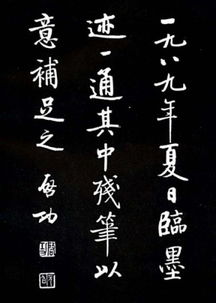 一九八九年夏日臨墨
迹一通其中殘筆以
意補足之 啟功